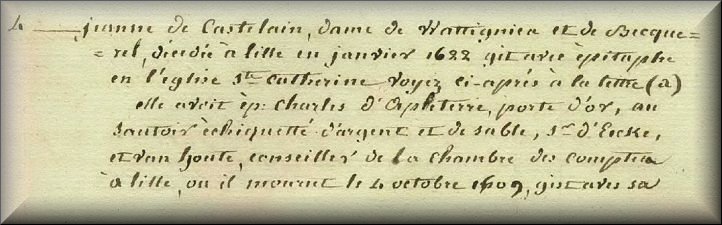 4 — jeanne de Castelain, dame de Wattignies et de Becque=
=rel, décédée à lille en janvier 1622 git avec épitaphe
en l'église Ste Catherine voyez ci-après à la lettre (a)
elle avoit ép: Charles d'Apleterre, porte d'or, au
sautoir échiquetté d'argent et de sable, sr d'Eecke,
et van houte, conseiller de la chambre des comptes
à lille, où il mourut le 4 octobre 1609, gist avec sa